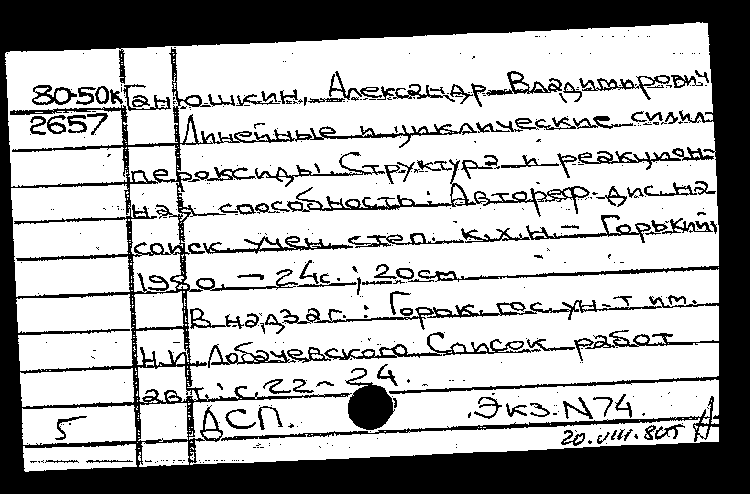 80-50к Ганюшкин, Александр Владимирович
2657 Линейные и циклические силил-
пероксиды. Структура и реакцион-
ная способность: Автореф. дис. на
соиск. учен. степ. к.х.н. – Горький
1980. – 24с.; 20см.
В надзаг.: Горьк. гос. ун-т им.
Н.И. Лобачевского Список работ
авт.: с. 22-24.
5 ДСП. Экз. N74.
20.VIII.80